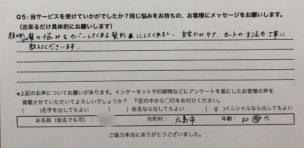 Q5:当サービスを受けていかがでしたか?同じ悩みをお持ちの、お客様にメッセージをお願いします。
(出来るだけ具体的にお願いします)
髪の悩みをカバーしてくれる髪形にしてくれるし、自宅でのケア、カットの手法も丁寧に
教えてくださいます。
*上記のお声についてお願いがあります。インターネットや印刷物などにアンケートを基にしたお客様の声を
掲載させていただいてよろしいでしょうか? 下記の中から○印をお付けください。
( )名字を出してもよい ( )仮名なら出してもよい (○)イニシャルなら出してもよい
お名前(仮名でも可): 市町村: 広島市 年齢: 30 代
ご協力本当にありがとうございました。